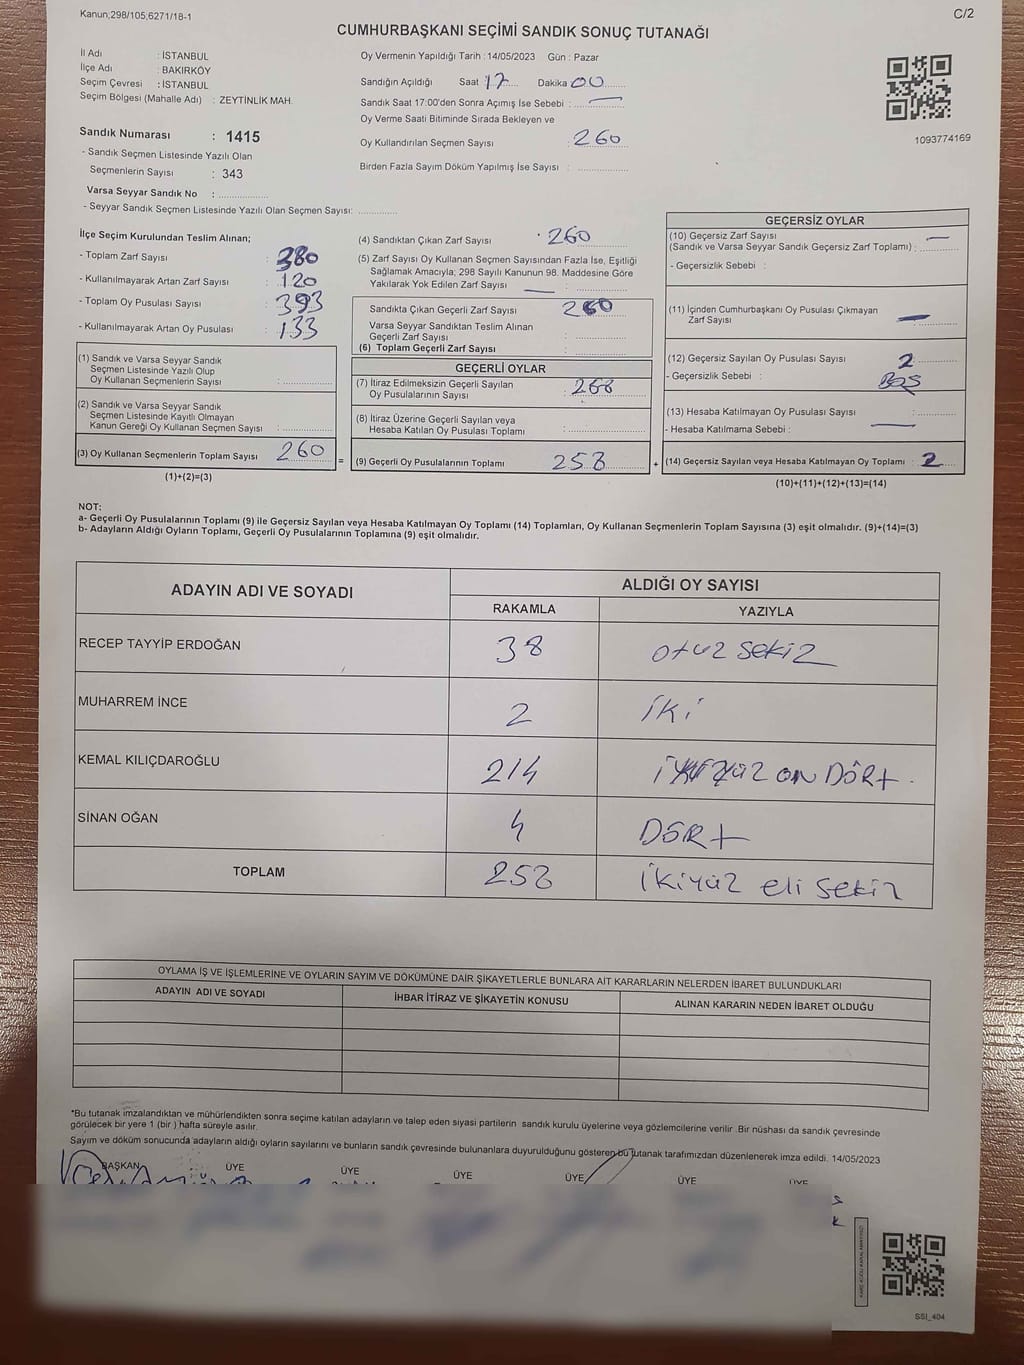 Kanun;298/105;6271/18-1
C/2
CUMHURBAŞKANI SEÇİMİ SANDIK SONUÇ TUTANAĞI
İl Adı : İSTANBUL
İlçe Adı : BAKIRKÖY
Seçim Çevresi : İSTANBUL
Seçim Bölgesi (Mahalle Adı) : ZEYTİNLİK MAH.
Sandık Numarası : 1415
- Sandık Seçmen Listesinde Yazılı Olan
Seçmenlerin Sayısı : 343
Varsa Seyyar Sandık No : ..................
- Seyyar Sandık Seçmen Listesinde Yazılı Olan Seçmen Sayısı: ..............
Oy Vermenin Yapıldığı Tarih : 14/05/2023 Gün : Pazar
Sandığın Açıldığı Saat 17 Dakika 00
Sandık Saat 17:00'den Sonra Açımış İse Sebebi : —
Oy Verme Saati Bitiminde Sırada Bekleyen ve
Oy Kullandırılan Seçmen Sayısı : 260
Birden Fazla Sayım Döküm Yapılmış İse Sayısı : ..................
1093774169
İlçe Seçim Kurulundan Teslim Alınan;
- Toplam Zarf Sayısı : 380
- Kullanılmayarak Artan Zarf Sayısı : 120
- Toplam Oy Pusulası Sayısı : 393
- Kullanılmayarak Artan Oy Pusulası : 133
(1) Sandık ve Varsa Seyyar Sandık
Seçmen Listesinde Yazılı Olup
Oy Kullanan Seçmenlerin Sayısı : ..................
(2) Sandık ve Varsa Seyyar Sandık
Seçmen Listesinde Kayıtlı Olmayan
Kanun Gereği Oy Kullanan Seçmen Sayısı : ..................
(3) Oy Kullanan Seçmenlerin Toplam Sayısı : 260
(1)+(2)=(3)
(4) Sandıktan Çıkan Zarf Sayısı : 260
(5) Zarf Sayısı Oy Kullanan Seçmen Sayısından Fazla İse, Eşitliği
Sağlamak Amacıyla; 298 Sayılı Kanunun 98. Maddesine Göre
Yakılarak Yok Edilen Zarf Sayısı — : ..................
Sandıkta Çıkan Geçerli Zarf Sayısı : 260
Varsa Seyyar Sandıktan Teslim Alınan
Geçerli Zarf Sayısı : ..................
(6) Toplam Geçerli Zarf Sayısı : ..................
GEÇERLİ OYLAR
(7) İtiraz Edilmeksizin Geçerli Sayılan
Oy Pusulalarının Sayısı :
(8) İtiraz Üzerine Geçerli Sayılan veya
Hesaba Katılan Oy Pusulası Toplamı : ..................
= (9) Geçerli Oy Pusulalarının Toplamı 258
GEÇERSİZ OYLAR
(10) Geçersiz Zarf Sayısı —
(Sandık ve Varsa Seyyar Sandık Geçersiz Zarf Toplamı) : ..............
- Geçersizlik Sebebi :
(11) İçinden Cumhurbaşkanı Oy Pusulası Çıkmayan
Zarf Sayısı — : ..............
(12) Geçersiz Sayılan Oy Pusulası Sayısı : 2
- Geçersizlik Sebebi : BOŞ
(13) Hesaba Katılmayan Oy Pusulası Sayısı : ..............
- Hesaba Katılmama Sebebi : —
+ (14) Geçersiz Sayılan veya Hesaba Katılmayan Oy Toplamı : 2
(10)+(11)+(12)+(13)=(14)
NOT:
a- Geçerli Oy Pusulalarının Toplamı (9) ile Geçersiz Sayılan veya Hesaba Katılmayan Oy Toplamı (14) Toplamları, Oy Kullanan Seçmenlerin Toplam Sayısına (3) eşit olmalıdır. (9)+(14)=(3)
b- Adayların Aldığı Oyların Toplamı, Geçerli Oy Pusulalarının Toplamına (9) eşit olmalıdır.
ADAYIN ADI VE SOYADI
ALDIĞI OY SAYISI
RAKAMLA YAZIYLA
RECEP TAYYİP ERDOĞAN 38 otuz sekiz
MUHARREM İNCE 2 iki
KEMAL KILIÇDAROĞLU 214 ikiyüz on DÖRt
SİNAN OĞAN 4 DÖRt
TOPLAM 258 ikiyüz eli sekiz
OYLAMA İŞ VE İŞLEMLERİNE VE OYLARIN SAYIM VE DÖKÜMÜNE DAİR ŞİKAYETLERLE BUNLARA AİT KARARLARIN NELERDEN İBARET BULUNDUKLARI
ADAYIN ADI VE SOYADI İHBAR İTİRAZ VE ŞİKAYETİN KONUSU ALINAN KARARIN NEDEN İBARET OLDUĞU
*Bu tutanak imzalandıktan ve mühürlendikten sonra seçime katılan adayların ve talep eden siyasi partilerin sandık kurulu üyelerine veya gözlemcilerine verilir .Bir nüshası da sandık çevresinde
görülecek bir yere 1 (bir ) hafta süreyle asılır.
Sayım ve döküm sonucunda adayların aldığı oyların sayılarını ve bunların sandık çevresinde bulunanlara duyurulduğunu gösteren bu tutanak tarafımızdan düzenlenerek imza edildi. 14/05/2023
BAŞKAN ÜYE ÜYE ÜYE ÜYE ÜYE ÜYE
SSI_404